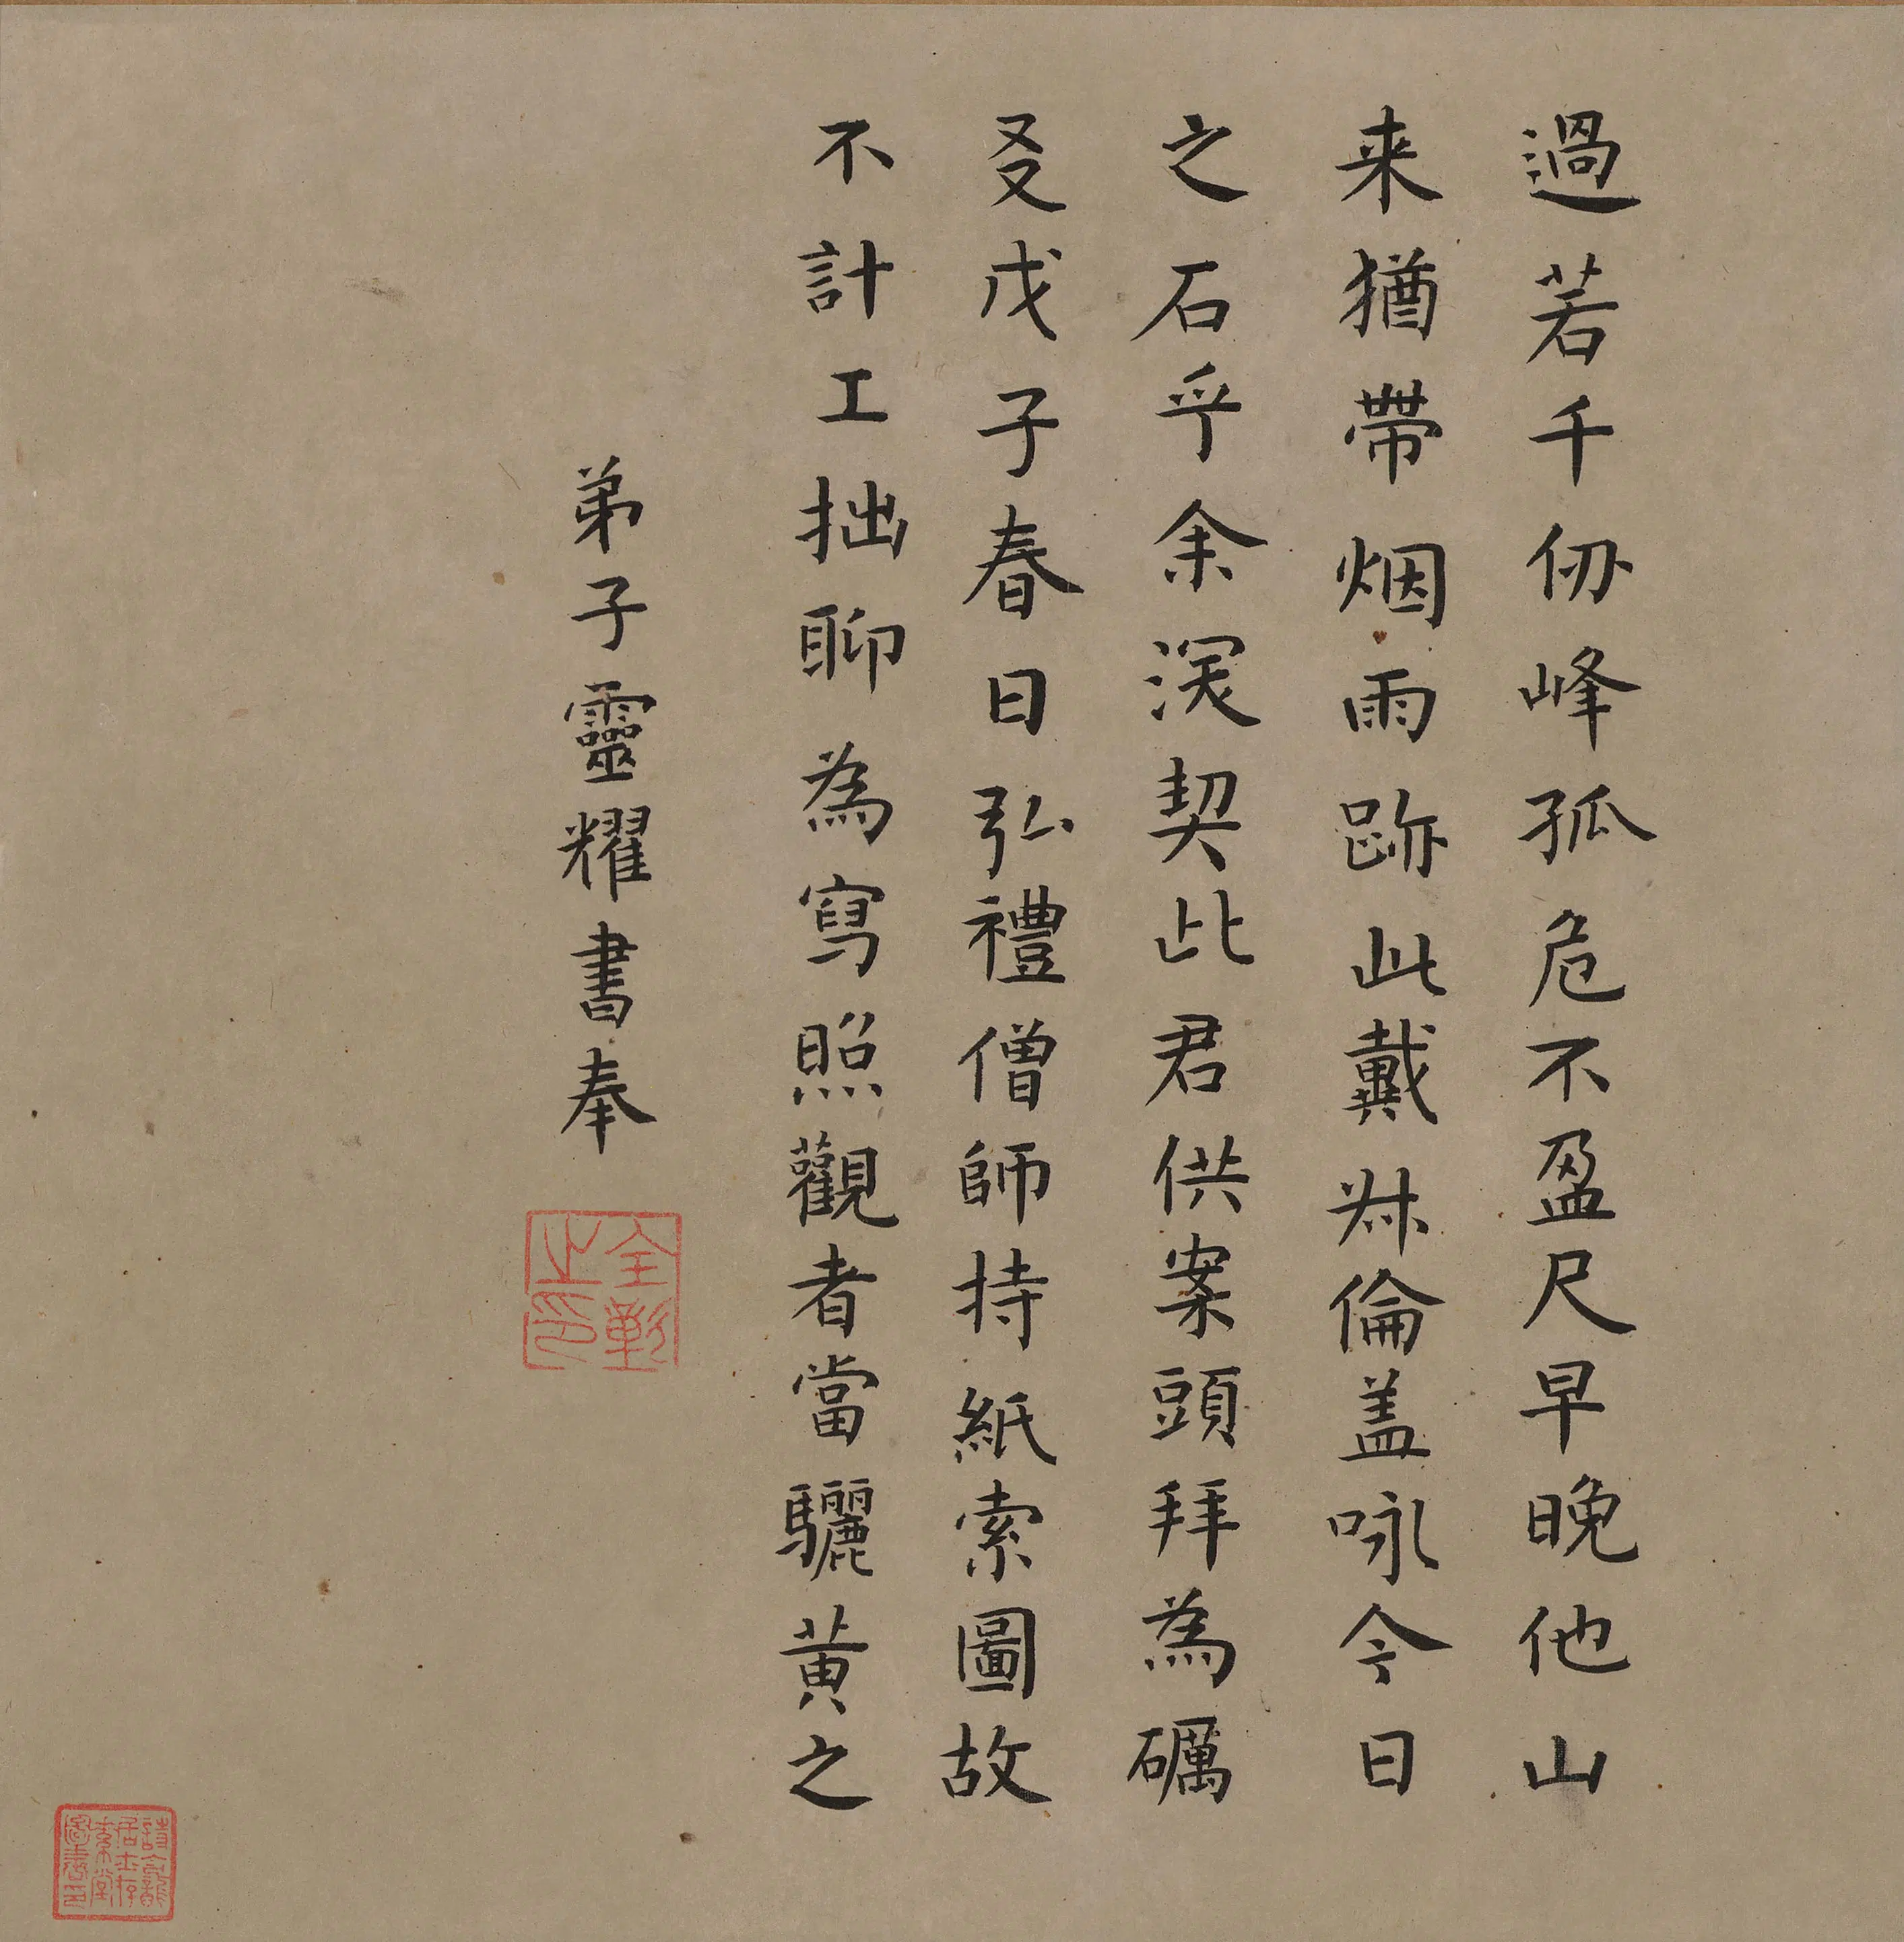 過若千仞峰孤危不盈尺早晚他山
来猶帶烟雨跡此戴叔倫盖咏今日
之石乎余深契此君供案頭拜為礪
叐戊子春日弘禮僧師持紙索圖故
不計工拙聊為寫照觀者當驪黄之
弟子靈耀書奉
全彰之印